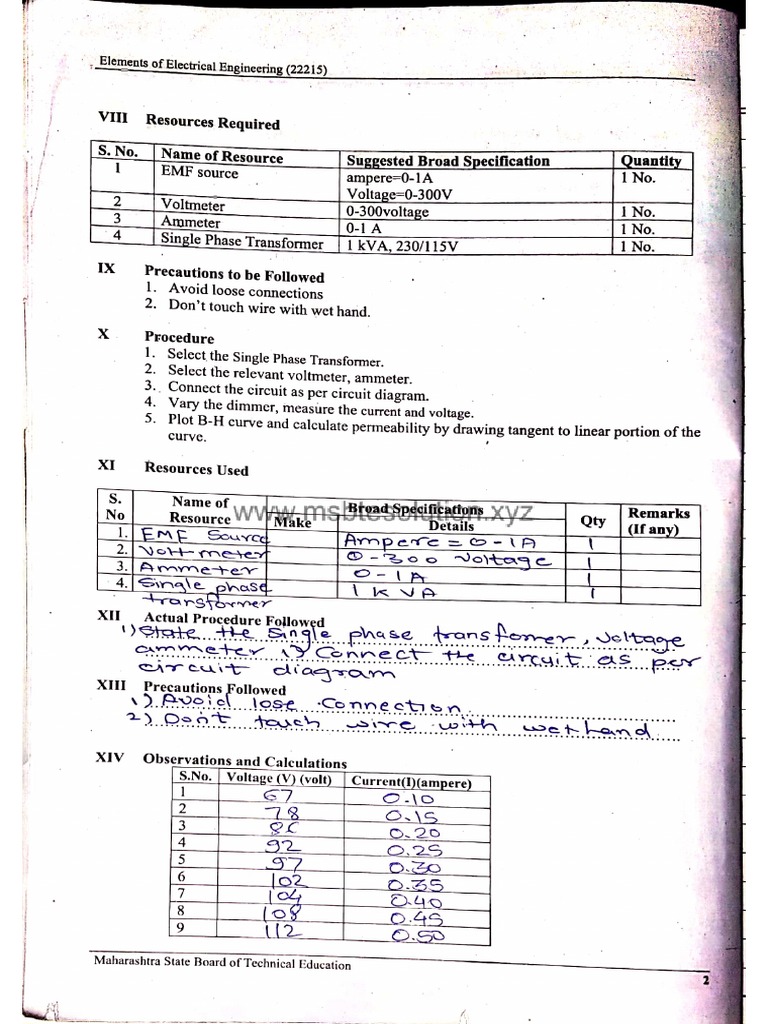 Elements of Electrical Engineering (22215)
VIII Resources Required
S. No. Name of Resource Suggested Broad Specification Quantity
1 EMF source ampere=0-1A 1 No.
Voltage=0-300V
2 Voltmeter 0-300voltage 1 No.
3 Ammeter 0-1 A 1 No.
4 Single Phase Transformer 1 kVA, 230/115V 1 No.
IX Precautions to be Followed
1. Avoid loose connections
2. Don't touch wire with wet hand.
X Procedure
1. Select the Single Phase Transformer.
2. Select the relevant voltmeter, ammeter.
3. Connect the circuit as per circuit diagram.
4. Vary the dimmer, measure the current and voltage.
5. Plot B-H curve and calculate permeability by drawing tangent to linear portion of the
curve.
XI Resources Used
www.msbtesolution.xyz
S. Name of Broad Specifications Qty Remarks
No Resource Make Details (If any)
1. EMF Source Ampere = 0-1A 1
2. Voltmeter 0-300 voltage 1
3. Ammeter 0-1A 1
4. Single phase 1 kVA 1
transformer
XII Actual Procedure Followed
1) State the Single phase transfomer, voltage
ammeter Connect the circuit as per
circuit diagram
XIII Precautions Followed
1) Avoid lose connection
2) Don't touch wire with wet hand
XIV Observations and Calculations
S.No. Voltage (V) (volt) Current(I)(ampere)
1 67 0.10
2 78 0.15
3 0.20
4 92 0.25
5 97 0.30
6 102 0.35
7 104 0.40
8 108 0.45
9 112 0.50
Maharashtra State Board of Technical Education
2